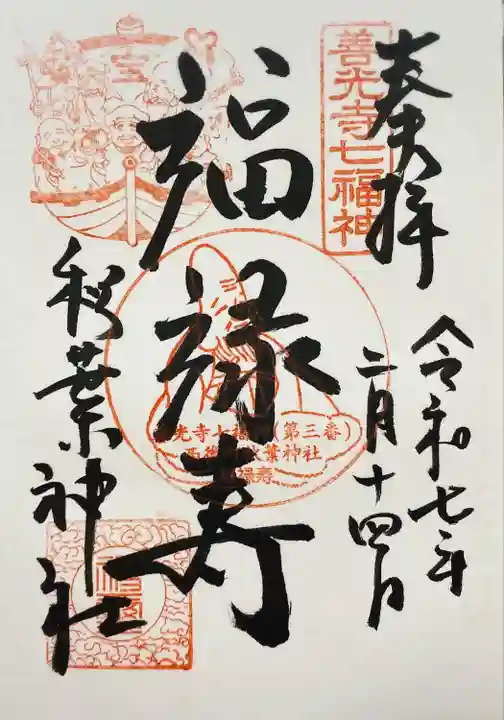 奉拝
善光寺七福神
令和七年
二月十四日
福禄寿
宝
光寺七福
(第三番)
葉神社
禄寿
秋葉神社